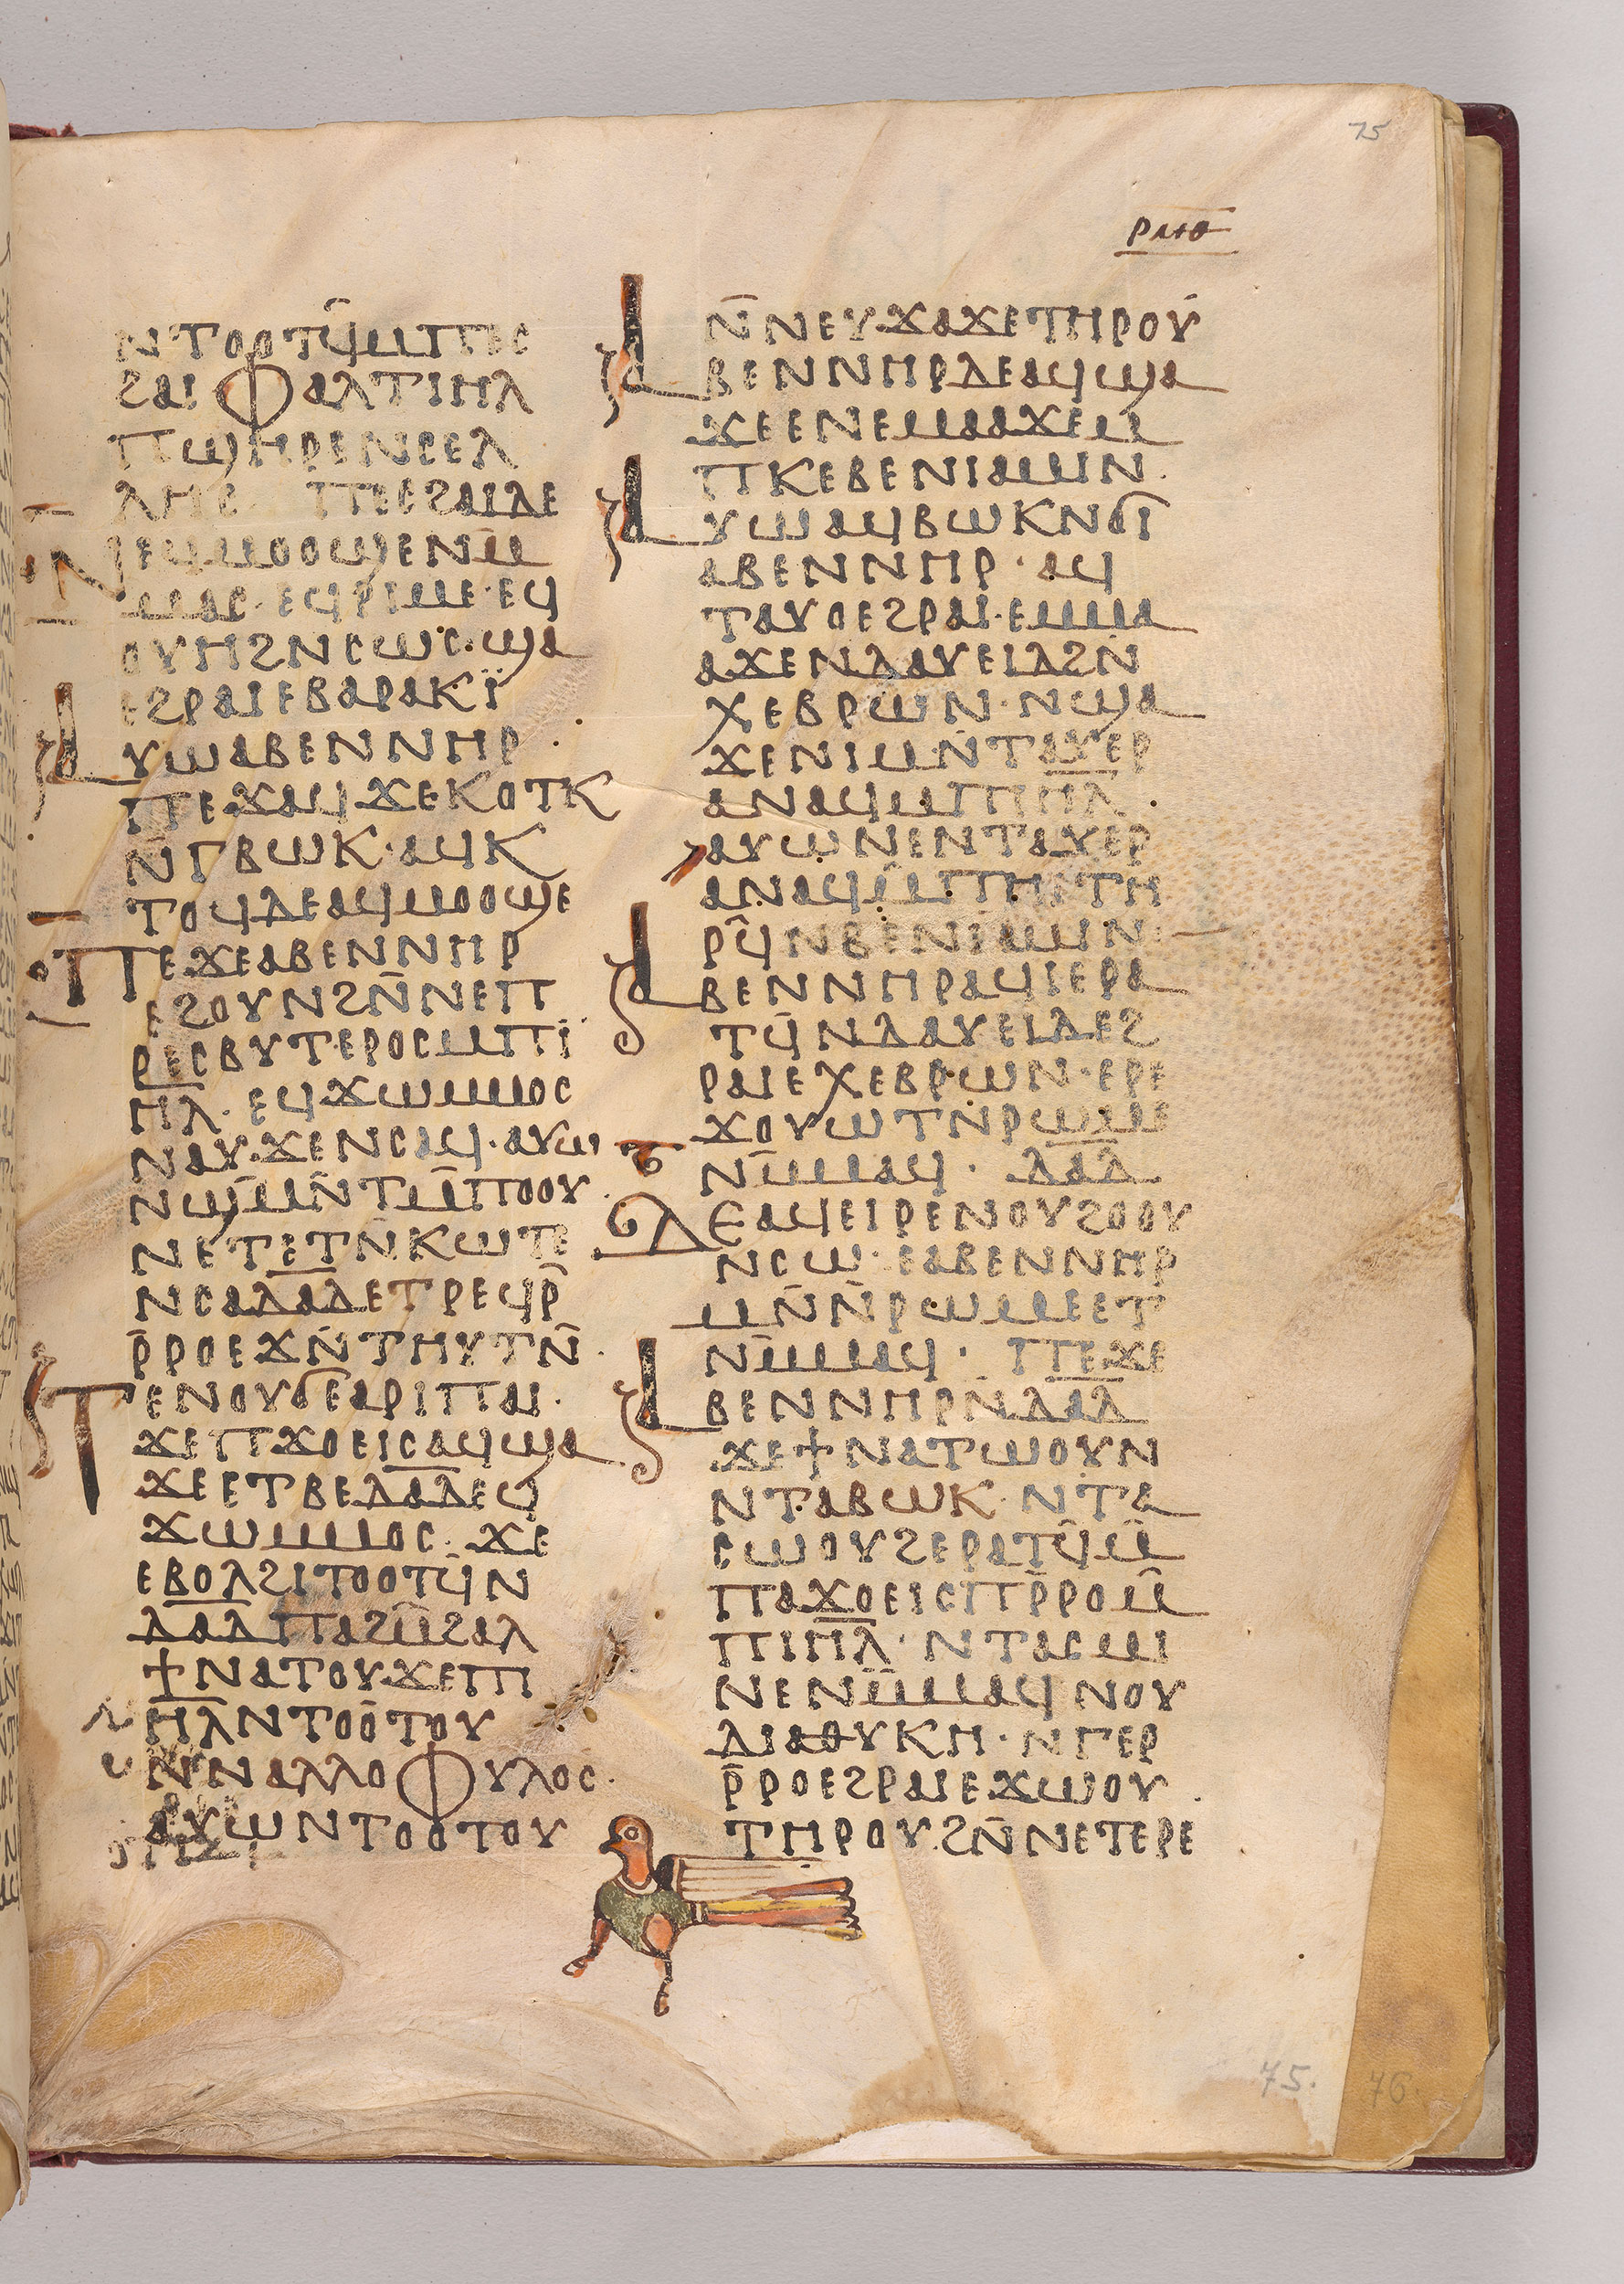 75
ⲣⲙⲑ
ⲛⲧⲟⲟⲧϥ̄ⲙⲡⲉⲥ
ϩⲁⲓ ⲫⲁⲗⲧⲓⲏⲗ
ⲡϣⲏⲣⲉⲛⲥⲉⲗ
ⲗⲏⲥ ⲡⲉⲥϩⲁⲓⲇⲉ
ⲛⲉϥⲙⲟⲟϣⲉⲛⲙ̄
ⲙⲁⲥ· ⲉϥⲣⲓⲙⲉ· ⲉϥ
ⲟⲩⲏϩⲛⲥⲱⲥ· ϣⲁ
ⲉϩⲣⲁⲓⲉⲃⲁⲣⲁⲕⲓ̈
ⲁⲩⲱⲁⲃⲉⲛⲛⲏⲣ·
ⲡⲉϫⲁϥϫⲉⲕⲟⲧⲕ
ⲛⲅ̄ⲃⲱⲕ· ⲁϥⲕ
ⲧⲟϥⲇⲉⲁϥⲙⲟⲟϣⲉ
ⲡⲉϫⲉⲁⲃⲉⲛⲛⲏⲣ
ⲉϩⲟⲩⲛϩⲛ̄ⲛⲉⲡ
ⲣⲉⲥⲃⲩⲧⲉⲣⲟⲥⲙⲡⲓ̈
ⲏ̄ⲗ̄· ⲉϥϫⲱⲙⲙⲟⲥ
ⲛⲁⲩ·ϫⲉⲛⲥⲁϥ· ⲁⲩⲱ
ⲛϣⲙ̄ⲛ̄ⲧⲙ̄ⲡⲟⲟⲩ·
ⲛⲉⲧⲉⲧⲛ̄ⲕⲱⲧⲉ
ⲛⲥⲁⲇⲁ̄ⲇ̄ⲉⲧⲣⲉϥⲣ̄
ⲣ̄ⲣⲟⲉϫⲛ̄ⲧⲏⲩⲧⲛ̄·
ⲧⲉⲛⲟⲩϭⲉⲁⲣⲓⲡⲁⲓ·
ϫⲉⲡϫⲟⲉⲓⲥⲁϥϣⲁ
ϫⲉⲉⲧⲃⲉⲇⲁ̄ⲇ̄ⲉϥ
ϫⲱⲙⲙⲟⲥ· ϫⲉ
ⲉⲃⲟⲗϩⲓⲧⲟⲟⲧϥ̄ⲛ
ⲇⲁ̄ⲇ̄ⲡⲁϩⲙ̄ϩⲁⲗ
ϯⲛⲁⲧⲟⲩϫⲉⲡ
ⲓⲏ̄ⲗ̄ⲛⲧⲟⲟ̄ⲧⲟⲩ
ⲛ̄ⲛⲁⲗⲗⲟⲫⲩⲗⲟⲥ·
ⲁⲩⲱⲛⲧⲟⲟⲧⲟⲩ
ⲛ̄ⲛⲉⲩϫⲁϫⲉⲧⲏⲣⲟⲩ
ⲁⲃⲉⲛⲛⲏⲣⲇⲉⲁϥϣⲁ
ϫⲉⲉⲛⲉⲙⲁⲁϫⲉⲙ
ⲡⲕⲉⲃⲉⲛⲓⲁⲙⲓⲛ·
ⲁⲩⲱⲁϥⲃⲱⲕⲛϭⲓ
ⲁⲃⲉⲛⲛⲏⲣ· ⲁϥ
ⲧⲁⲩⲟⲉϩⲣⲁⲓ· ⲉⲙⲙⲁ
ⲁϫⲉⲛⲇⲁⲩⲉⲓⲇϩⲛ̄
ⲭⲉⲃⲣⲱⲛ· ⲛϣⲁ
ϫⲉⲛⲓⲙⲛ̄ⲧⲁⲩⲉⲣ
ⲁⲛⲁϥⲙⲡⲓⲏ̄ⲗ̄·
ⲁⲩⲱⲛⲉⲛⲧⲁⲩⲉⲣ
ⲁⲛⲁϥⲙ̄ⲡⲏⲓⲧⲏ
ⲣϥ̄ⲛⲃⲉⲛⲓⲁⲙⲓⲛ·
ⲁⲃⲉⲛⲛⲏⲣⲁϥⲓⲉⲣⲁ
ⲧϥ̄ⲛⲇⲁⲩⲉⲓⲇⲉϩ
ⲣⲁⲓⲉⲭⲉⲃⲣⲱⲛ· ⲉⲣⲉ
ϫⲟⲩⲱⲧⲛ̄ⲣⲱⲙⲉ
ⲛⲙ̄ⲙⲁϥ· ⲇⲁ̄ⲇ̄
ⲇⲉⲁϥⲉⲓⲣⲉⲛⲟⲩϩⲟⲟⲩ
ⲛⲥⲱ· ⲉⲁⲃⲉⲛⲛⲏⲣ
ⲙⲛ̄ⲛ̄ⲣⲱⲙⲉⲉⲧ
ⲛⲙ̄ⲙⲁϥ· ⲡⲉϫⲉ
ⲁⲃⲉⲛⲛⲏⲣⲛ̄ⲇⲁ̄ⲇ̄
ϫⲉϯⲛⲁⲧⲱⲟⲩⲛ
ⲛⲧⲁⲃⲱⲕ· ⲛⲧⲁ
ⲥⲱⲟⲩϩⲉⲣⲁⲧϥ̄ⲙ̄
ⲡⲁϫⲟⲉⲓⲥⲡⲣ̄ⲣⲟⲙ̄
ⲡⲓⲏ̄ⲗ̄· ⲛⲧⲁⲥⲙⲓ
ⲛⲉⲛⲙ̄ⲙⲁϥⲛⲟⲩ
ⲇⲓⲁⲑⲩⲕⲏ· ⲛⲅⲉⲣ
ⲣ̄ⲣⲟⲉϩⲣⲁⲓⲉϫⲱⲟⲩ·
ⲧⲏⲣⲟⲩ·ϩⲛ̄ⲛⲉⲧⲉⲣⲉ
75.
76.